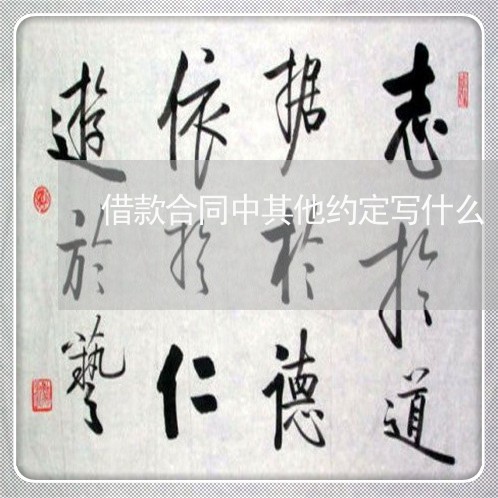 志於道
据於德
依於仁
遊於藝
借款合同中其他约定写什么